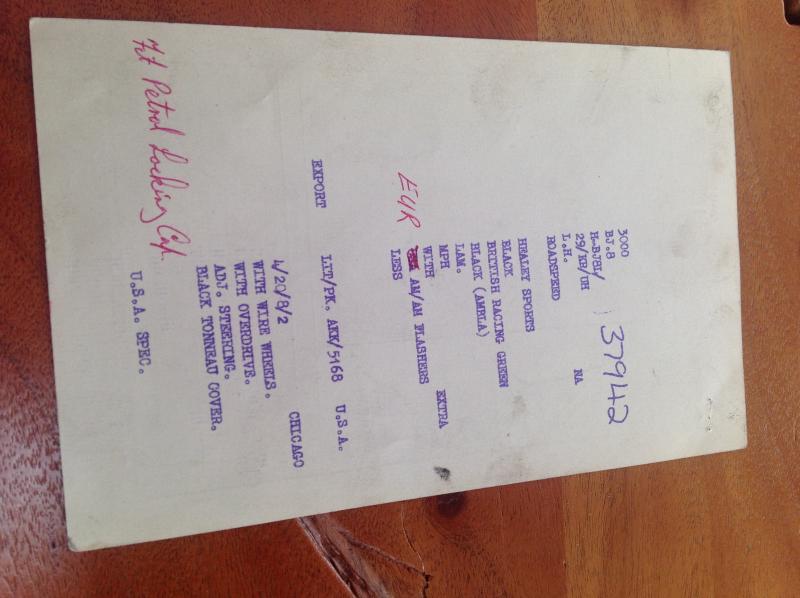 3000
BJ.8
H-BJ8L/ 37942
29/KB/UH
L.H. NA
ROADSPEED
HEALEY SPORTS
BLACK
BRITISH RACING GREEN
BLACK (AMBLA)
LAM.
MPH
WITH EXTRA
EUR AM/AM FLASHERS
LESS
EXPORT LIT/PK. AKK/5168 U.S.A.
4/20/8/2 CHICAGO
WITH WIRE WHEELS.
WITH OVERDRIVE.
ADJ. STEERING.
BLACK TONNEAU COVER.
Fit Petrol Locking Cap.
U.S.A. SPEC.